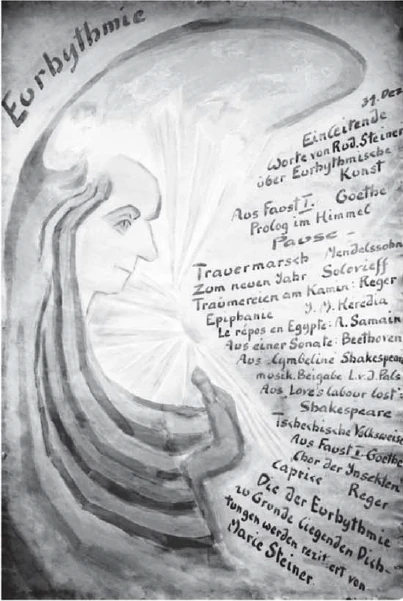 Eurhythmie
31. Dez
Einleitende
Worte von Rud. Steiner
über Eurhythmische
Kunst
Aus Faust I. Goethe
Prolog im Himmel
Pause –
Trauermarsch Mendelssohn
Zum neuen Jahr Solovieff
Träumereien am Kamin: Reger
Epiphanie J. M. Heredia
Le répos en Egypte: A. Samain
Aus einer Sonate: Beethoven
Aus Cymbeline Shakespeare
musik. Beigabe L. v. d. Pals
Aus Love's labour lost:
Shakespeare
Tschechische Volksweise
Aus Faust I – Goethe
Chor der Insekten
Caprice Reger
Die der Eurhythmie
zu Grunde liegenden Dich-
tungen werden rezitiert von
Marie Steiner